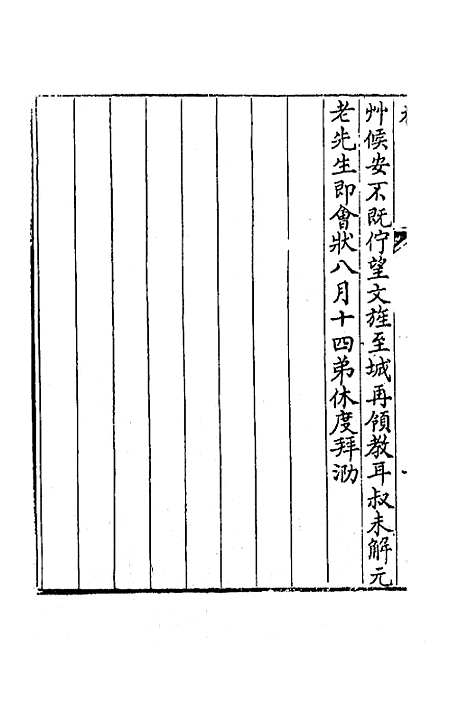 艸候安不既佇望文旌至城再領教耳叔未解元
老先生即會狀八月十四弟休度拜泐